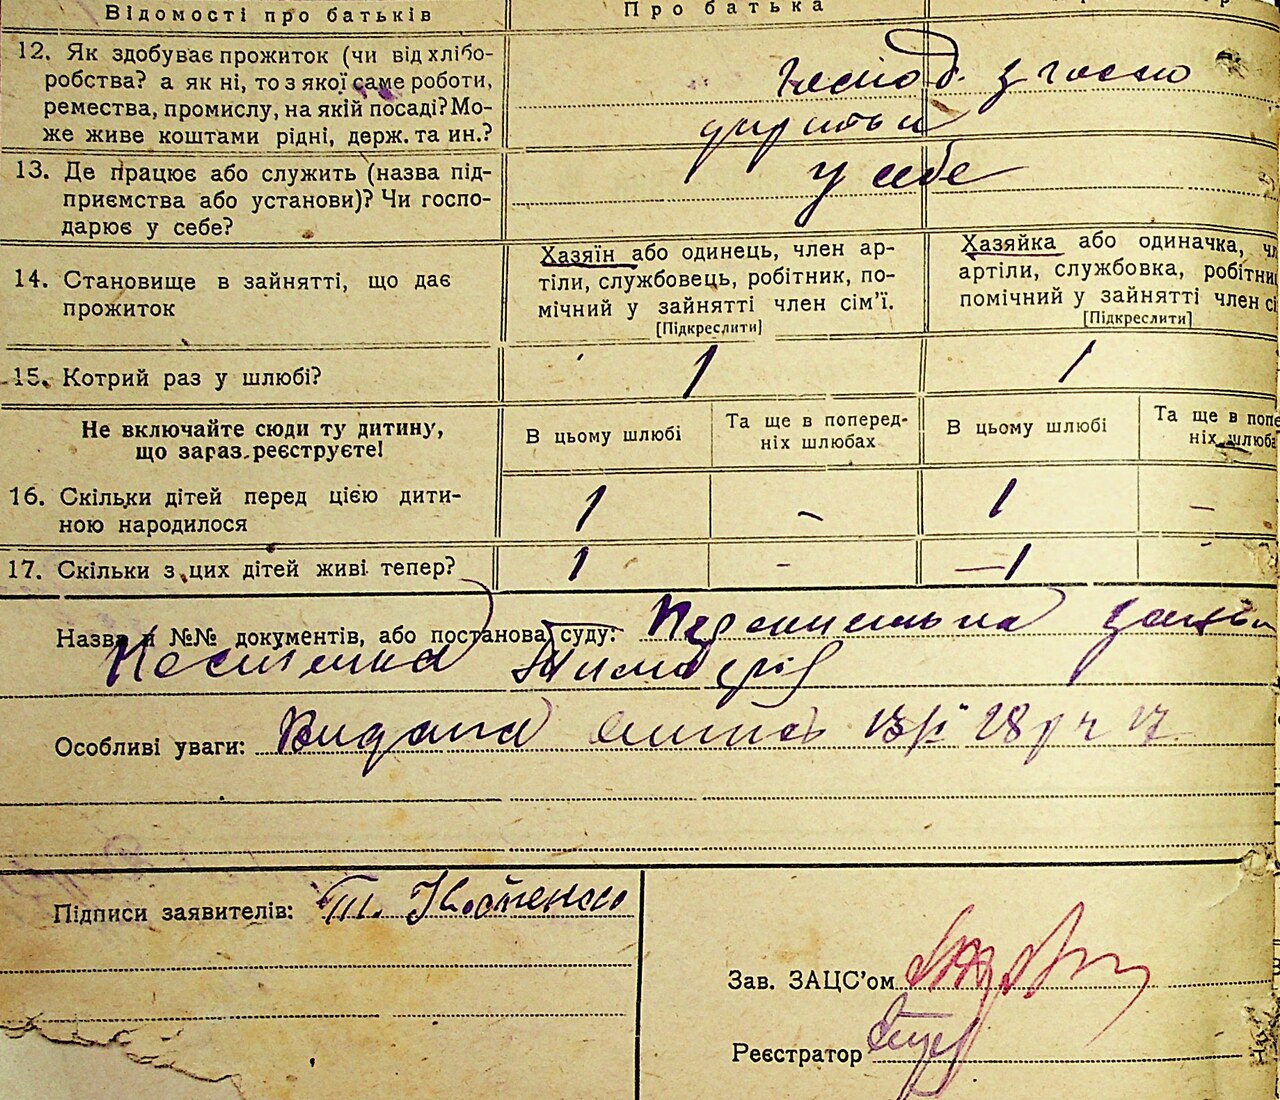 Відомості про батьків
Про батька
12. Як здобуває прожиток (чи від хлібо-
робства? а як ні, то з якої саме роботи,
ремества, промислу, на якій посаді? Мо-
же живе коштами рідні, держ. та ин.?
13. Де працює або служить (назва під-
приємства або установи)? Чи госпо-
дарює у себе?
у себе
14. Становище в зайнятті, що дає
прожиток
Хазяїн або одинець, член ар-
тіли, службовець, робітник, по-
мічний у зайнятті член сім'ї.
[Підкреслити]
Хазяйка або одиначка, чл
артіли, службовка, робітниц
помічний у зайнятті член сі
[Підкреслити]
15. Котрий раз у шлюбі?
1 1
Не включайте сюди ту дитину,
що зараз реєструєте!
В цьому шлюбі
Та ще в поперед-
ніх шлюбах
В цьому шлюбі
Та ще в попе
ніх шлюба
16. Скільки дітей перед цією дити-
ною народилося
1 – 1 –
17. Скільки з цих дітей живі тепер?
1 – –1 -
Назва й №№ документів, або постанова суду:
Особливі уваги: Видана 28 р ч 17
Підписи заявителів: Т. Костенко
Зав. ЗАЦС'ом
Реєстратор